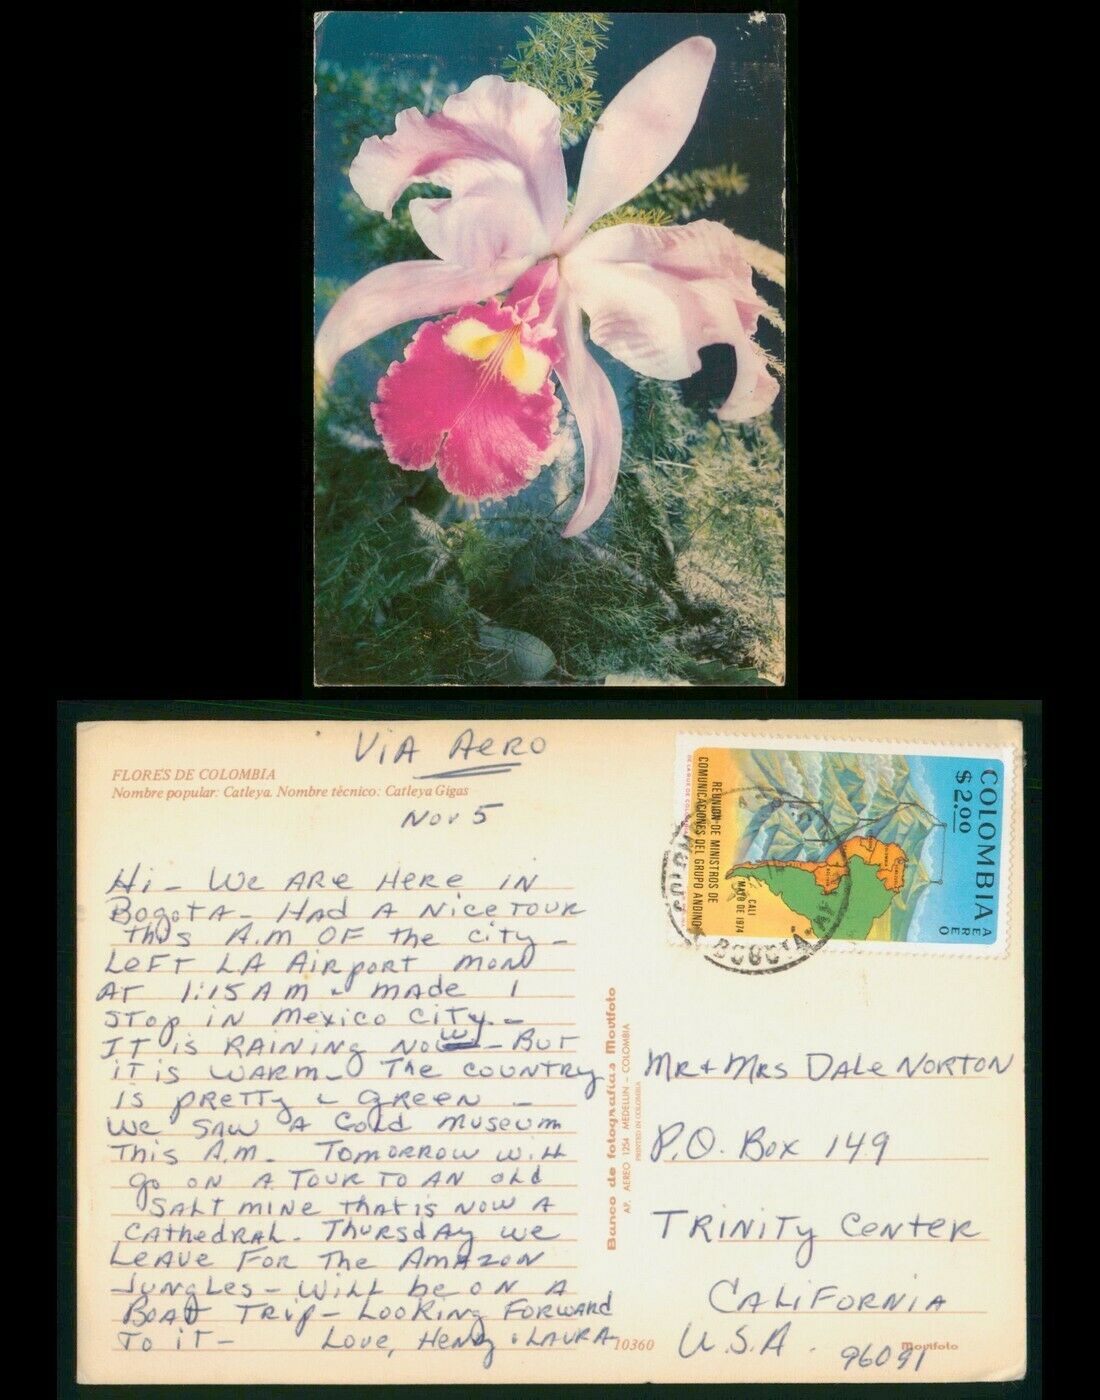 FLORES DE COLOMBIA
Nombre popular: Catleya. Nombre técnico: Catleya Gigas
VIA AERO
Nov 5
Hi - We ARE Here IN
Bogota - HAD A Nice TOUR
this A.M OF the city -
Left LA Airport mon
AT 1:15 AM - made 1
stop in Mexico City -
IT is RAINING NOW - BUT
it is WARM - The COUNTRY
is pretty & GREEN -
We SAW A Gold Museum
This A.M. Tomorrow will
go on A Tour To AN old
SALT mine that is NOW A
Cathedral. Thursday we
Leave For The Amazon
Jungles - Will be on A
Boat Trip - Looking Forward
To it - Love, Henry & LAURA
Banco de fotografias Movifoto
AP. AEREO 1254 MEDELLIN - COLOMBIA
PRINTED IN COLOMBIA
10360
COLOMBIA
$2.00
AEREO
REUNION DE MINISTROS DE
COMUNICACIONES DEL GRUPO ANDINO
CALI
MAYO DE 1974
BOGOTA
MR + MRS DALE NORTON
P.O. Box 149
TRINITY CENTER
CALIFORNIA
U.S.A.
96091
Movifoto